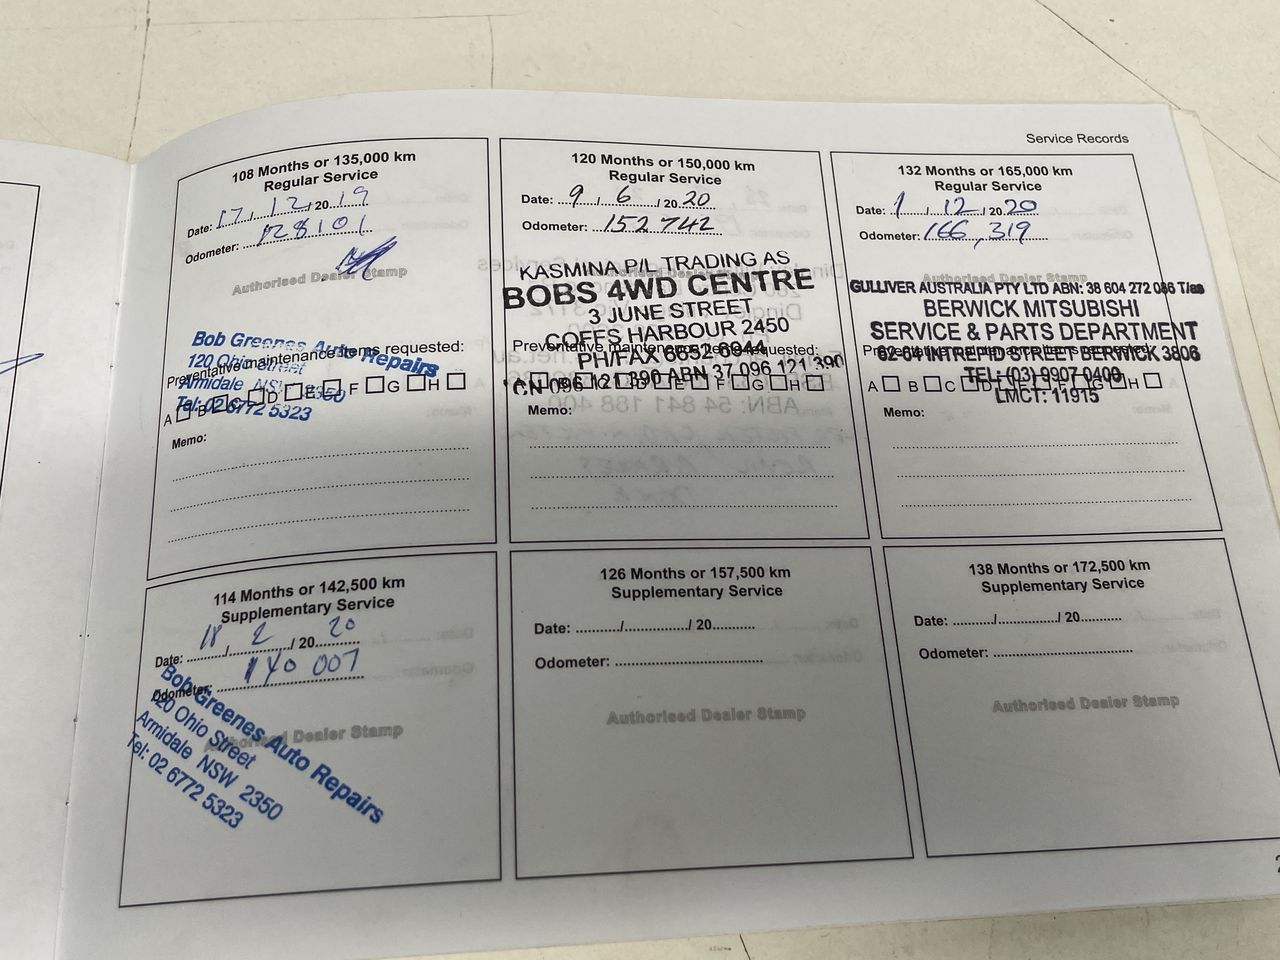 Service Records
108 Months or 135,000 km
Regular Service
Date: 17 / 12 / 20 19
Odometer: 128101
Authorised Dealer Stamp
Bob Greenes Auto Repairs
120 Ohio Street
Armidale NSW 2350
Tel: 02 6772 5323
Preventative maintenance items requested:
A B C D E F G H
Memo:
120 Months or 150,000 km
Regular Service
Date: 9 / 6 / 20 20
Odometer: 152 742
KASMINA P/L TRADING AS
BOBS 4WD CENTRE
3 JUNE STREET
COFFS HARBOUR 2450
PH/FAX 6652 6944
CN 096 121 390 ABN 37 096 121 390
Preventative maintenance items requested:
A B C D E F G H
Memo:
132 Months or 165,000 km
Regular Service
Date: 1 / 12 / 20 20
Odometer: 166,319
Authorised Dealer Stamp
GULLIVER AUSTRALIA PTY LTD ABN: 38 604 272 086 T/as
BERWICK MITSUBISHI
SERVICE & PARTS DEPARTMENT
62-64 INTREPID STREET BERWICK 3806
TEL: (03) 9907 0400
LMCT: 11915
A B C D E F G H
Memo:
114 Months or 142,500 km
Supplementary Service
Date: 18 / 2 / 20 20
Odometer: 140 007
Authorised Dealer Stamp
Bob Greenes Auto Repairs
120 Ohio Street
Armidale NSW 2350
Tel: 02 6772 5323
126 Months or 157,500 km
Supplementary Service
Date: ........../................/ 20..........
Odometer: ..................................
Authorised Dealer Stamp
138 Months or 172,500 km
Supplementary Service
Date: ........../................/ 20..........
Odometer: ..................................
Authorised Dealer Stamp